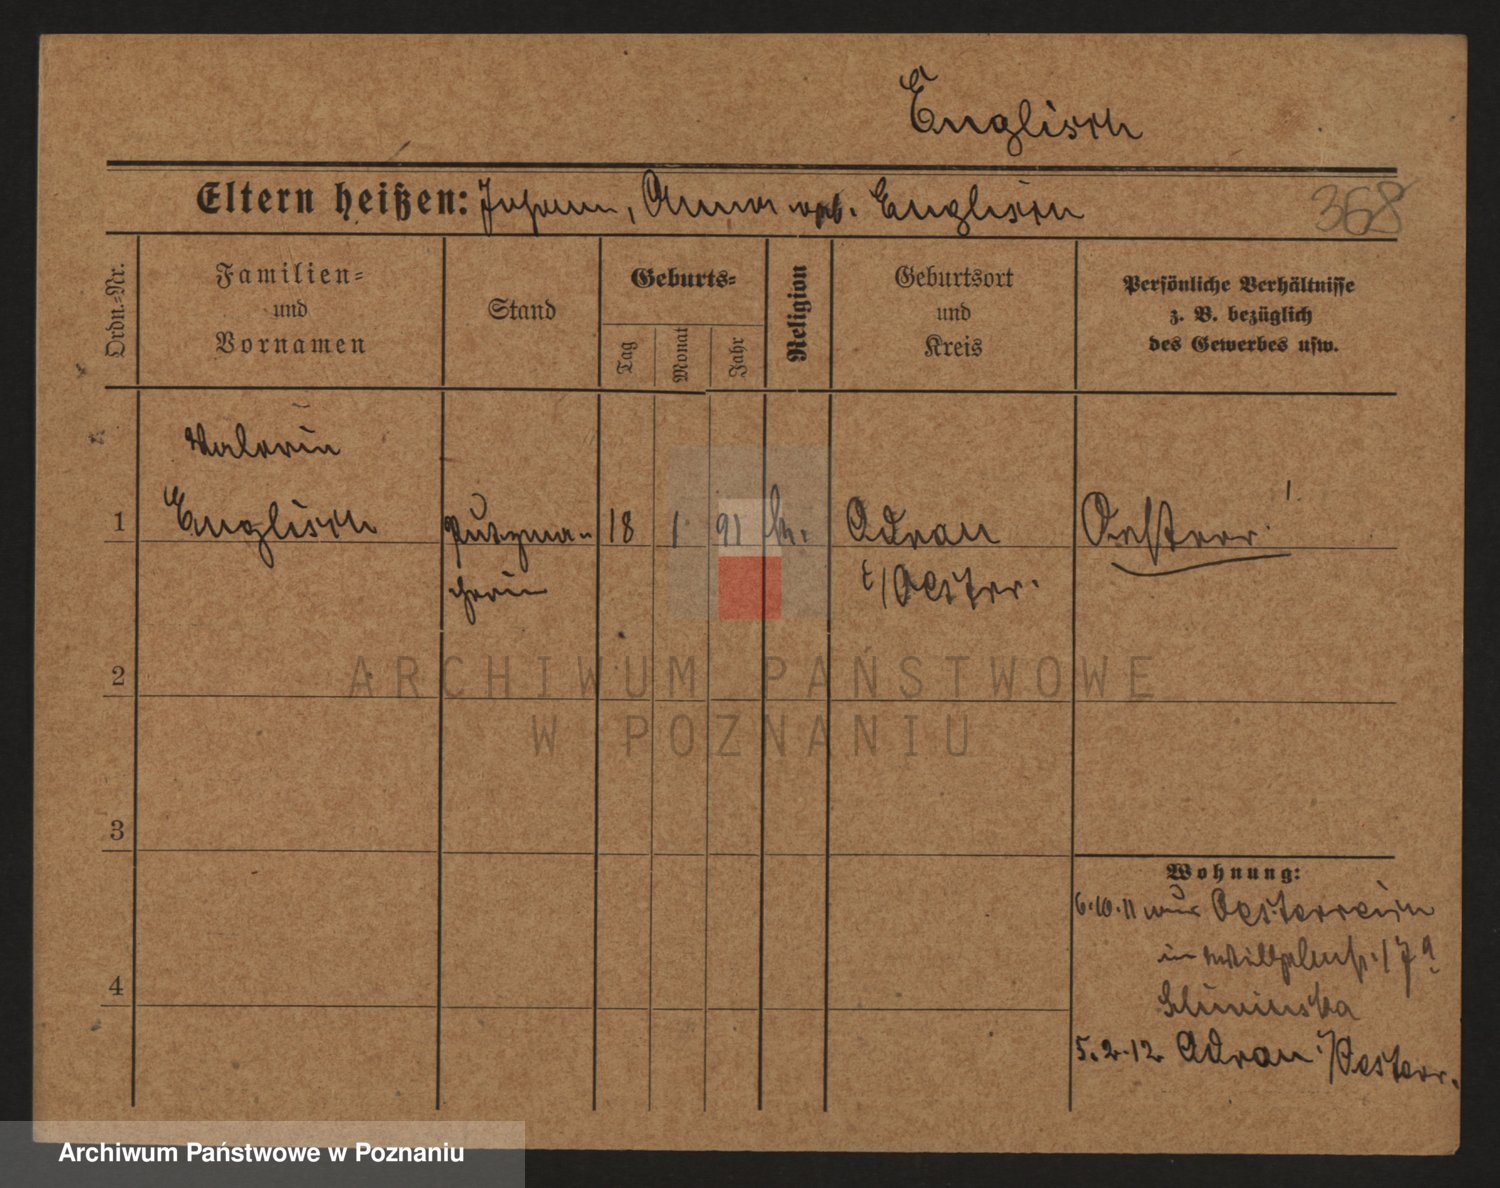 Englisch
Eltern heißen: Johann, Anna geb. Englisch
368
Ordn.-Nr.
Familien-
und
Vornamen
Stand
Geburts-
Tag
Monat
Jahr
Religion
Geburtsort
und
Kreis
Persönliche Verhältnisse
z. B. bezüglich
des Gewerbes usw.
Valerie
1 Englisch Putzma- 18 1. 91 k. Odrau Oesterr.!
cherin i/Oesterr.
2
3
Wohnung:
6.10.11 aus Oesterreich
in Wilhelmstr. 17a
4
5.2.12 Odrau i/Oesterr.
ARCHIWUM PAŃSTWOWE
W POZNANIU
Archiwum Państwowe w Poznaniu